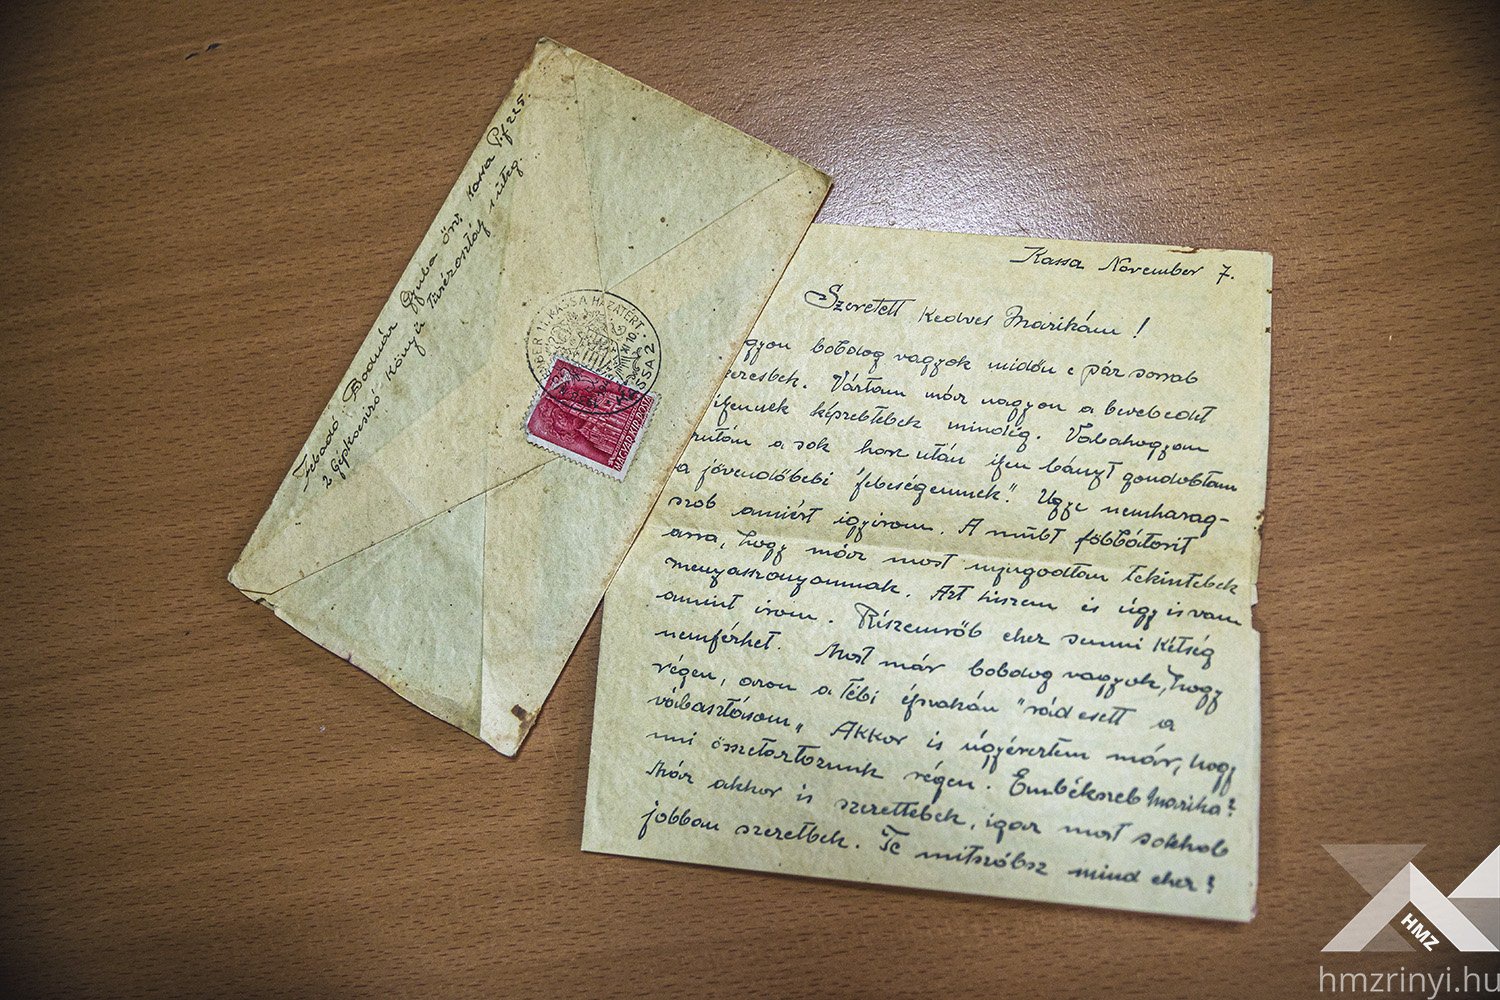 Feladó Bodnár Gyula őrv. Kassa P.f 225.
2 Gépkocsizó Könyü Tüzérosztály 1 üteg.
KASSA HAZATÉRT
XI.10.
KASSA 2
MAGYAR KIR. POSTA
Kassa November 7.
Szeretett Kedves Marikám!
gyon boldog vagyok midőn e pár sorral
reslek. Vártam már nagyon a leveledet
ilyennek képzeltelek mindég. Valahogyan
után a sok harc után ilyen lányt gondoltam
a jövendőbeli "feleségemnek". Ugye nemharag-
szol amiért igyirom. A mult följbátorit
arra, hogy már most nyugodtan tekintelek
menyasszonyomnak. Azt hiszem és úgy is van
amint irom. Részemről ehez semmi Kétség
nemférhet. Most már boldog vagyok, hogy
régen, azon a téli éjszakán "rád esett a
választásom" Akkor is úgyéreztem már, hogy
mi összetartozunk régen. Emlékszel Marika?
Már akkor is szerettelek, igaz most sokkal
jobban szeretlek. Te mitszólsz mind ehez?
HMZ
hmzrinyi.hu